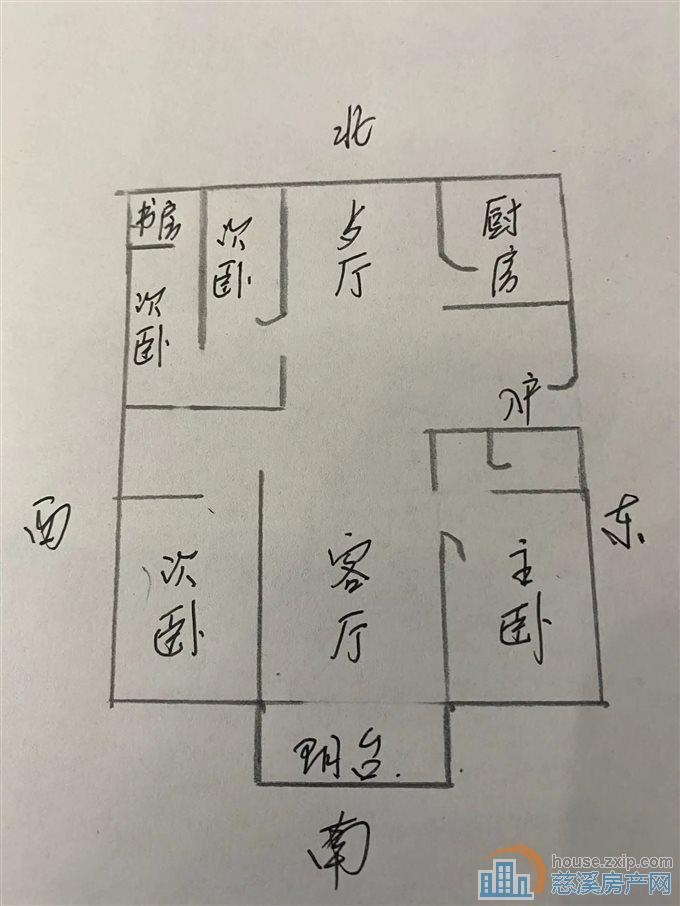 北
书房
次卧
次卧
厅
厨房
入户
西
东
次卧
客厅
主卧
阳台
南
house.zxip.com
慈溪房产网